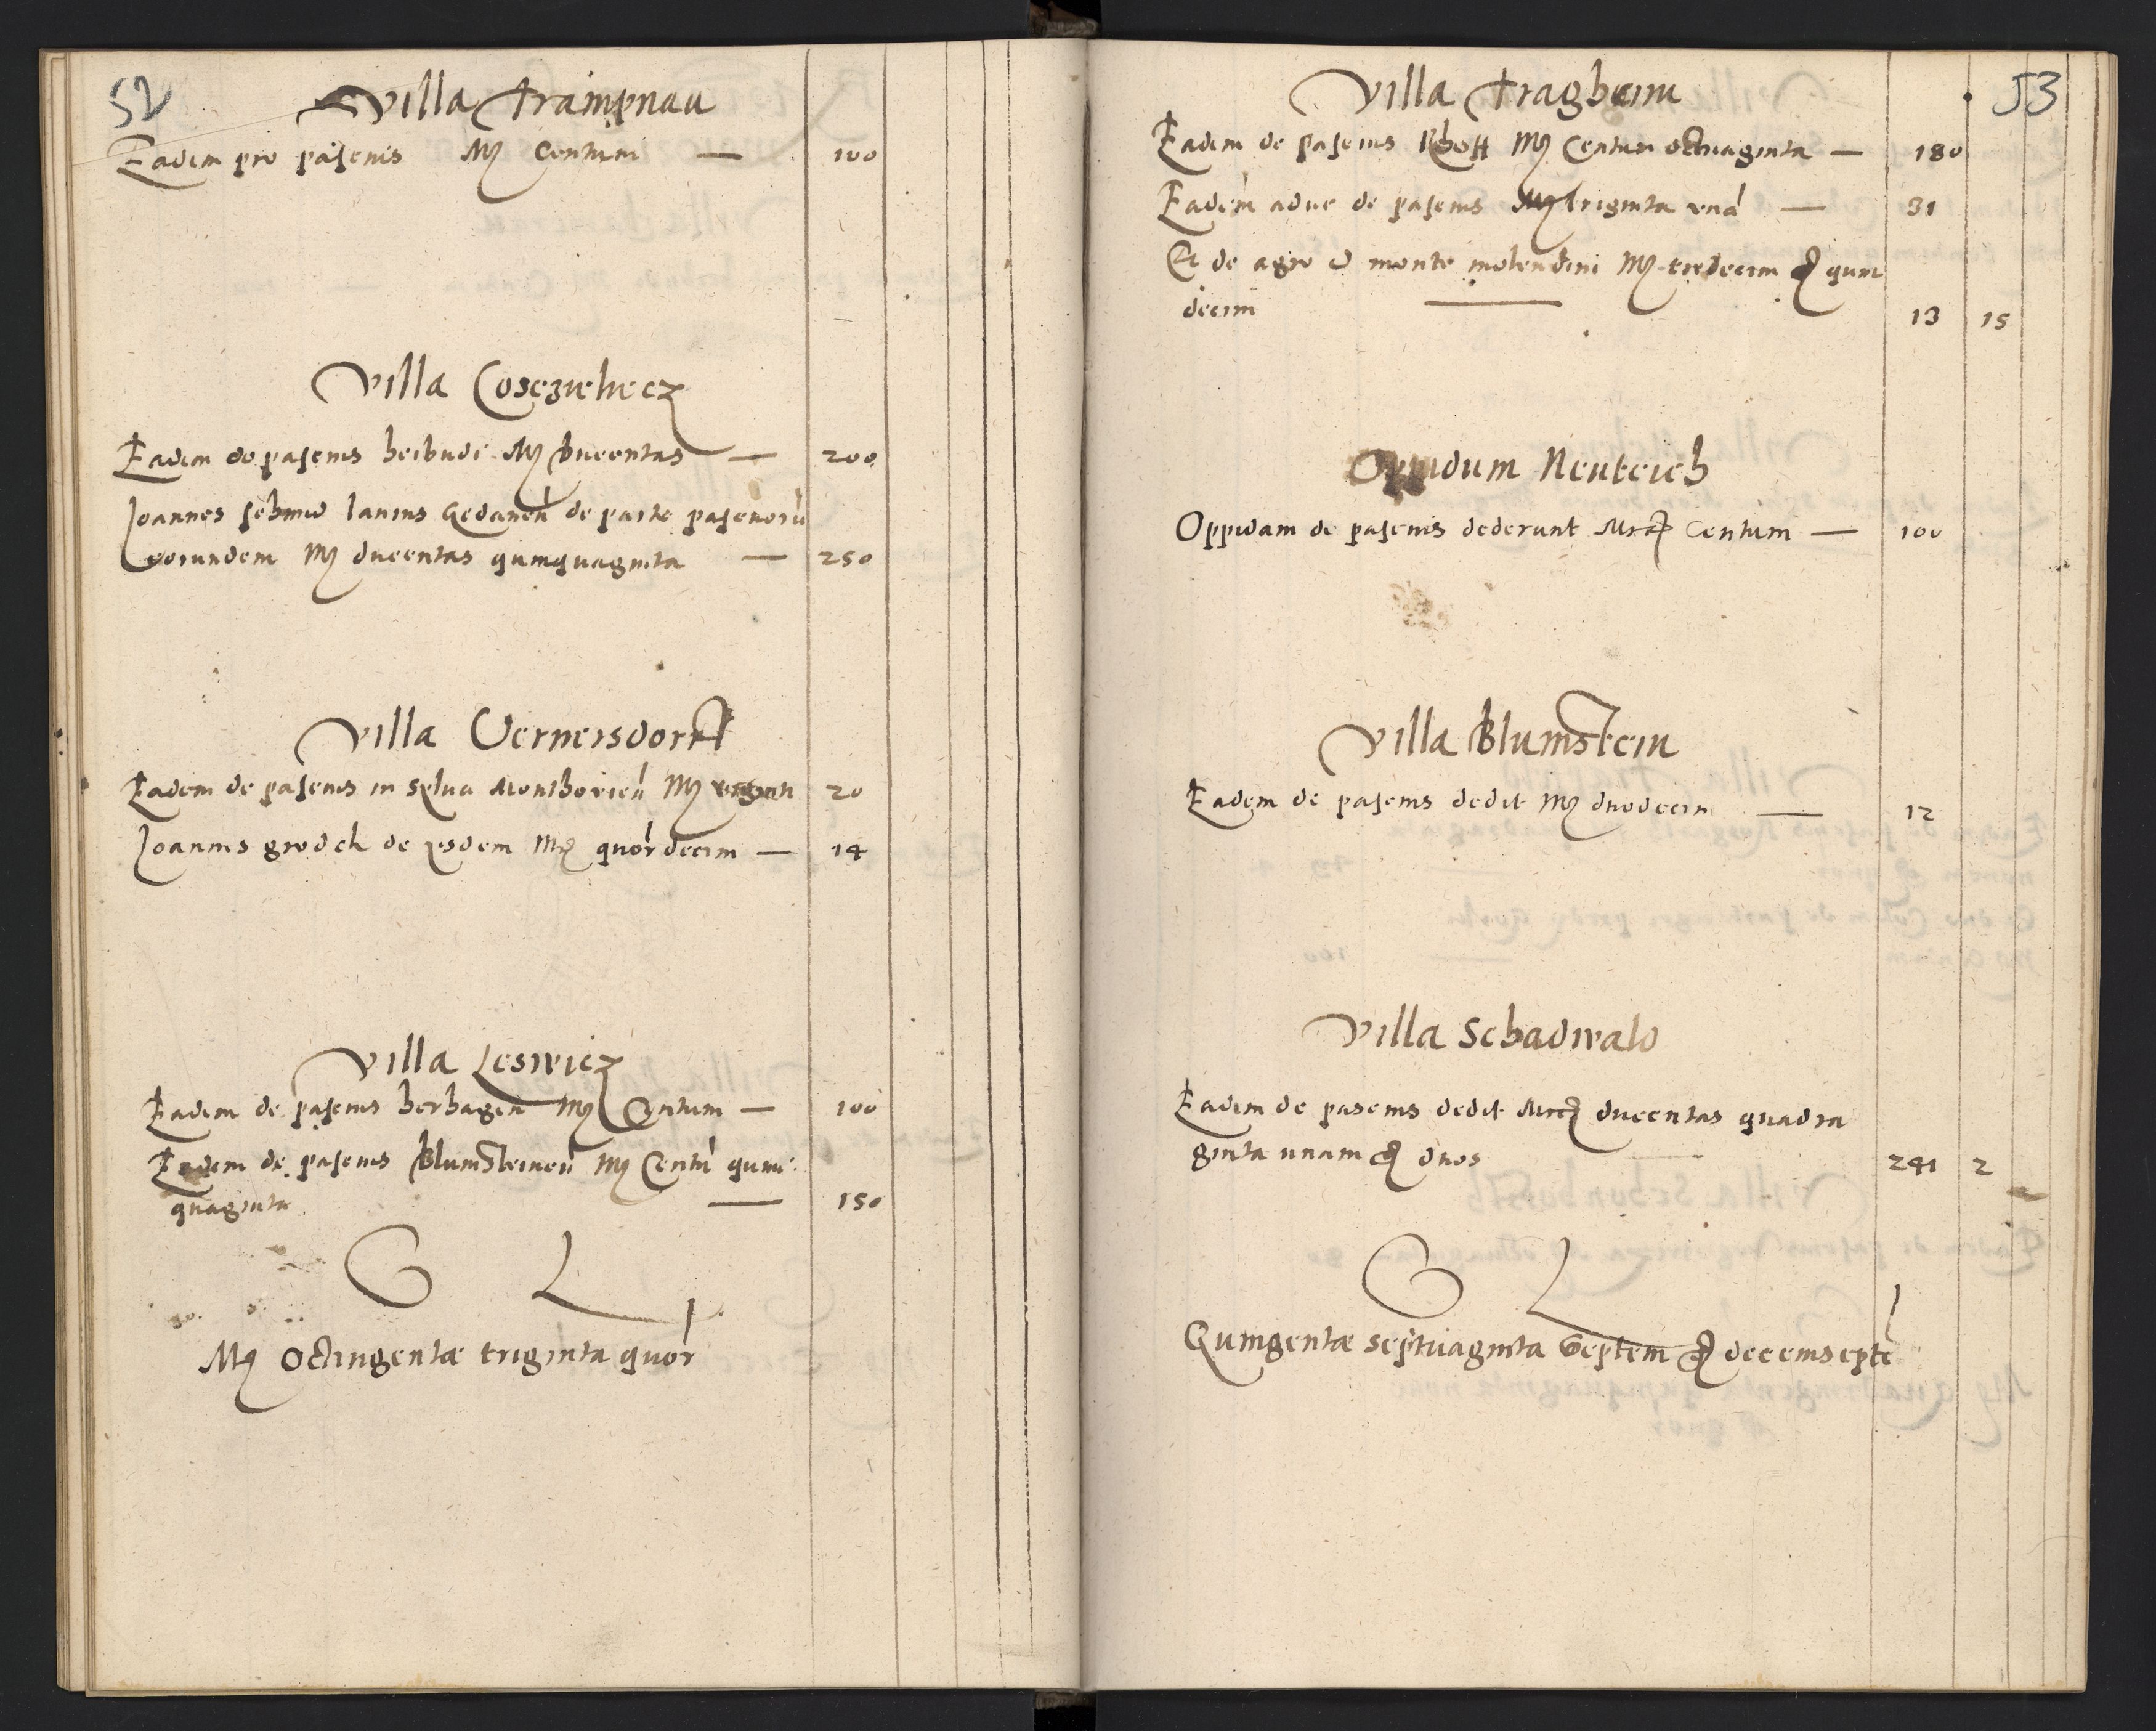 52
Villa Trampnau
Eadem pro pascuis Mr Centum — 100
Villa Cosczieliecz
Eadem de pascuis heibudē Mr Ducentas — 200
Joannes Schmid lanius Gedanen̄ de parte pascuorū
eorundem Mr ducentas quinquaginta — 250
Villa Vernersdorff
Eadem de pascuis in sylva Monthovien̄ Mr viginti 20
Joannes grodek de ijsdem Mr quordecim — 14
Villa Leswicz
Eadem de pascuis herhagen Mr Centum — 100
Eadem de pascuis Blumsteinen̄ Mr Centū quin
quaginta — 150
S L
Mr Octingentæ triginta quor
53
Villa Tragheim
Eadem de pascuis Mr Centum octuaginta — 180
Eadem aduc de pascuis Mr triginta unā — 31
Et de agro et monte molendini Mr tredecim gr quin
decim — 13 15
Oppidum Neuteich
Oppidani de pascuis dederunt Mrcas Centum — 100
Villa Blumstein
Eadem de pascuis dedit Mr duodecim — 12
Villa Schadwald
Eadem de pascuis dedit Mrcas ducentas quadra
ginta unam gr duos 241 2
S L
Quingentæ septuaginta septem gr decemseptē